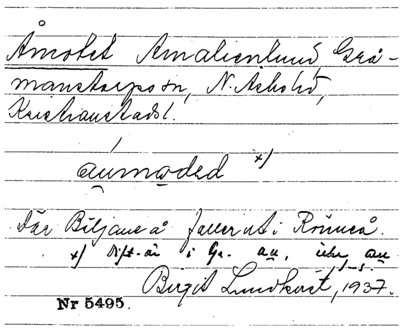 Åmotet Amalienlund Grå-
manstorps sn, N. Åsbohd,
Kristianstads l.
áumoded x)
Där Biljane å faller ut i Rönneå.
x) Dift. är i Gr. au,
Birgit Lundkvist, 1937.
Nr 5495.